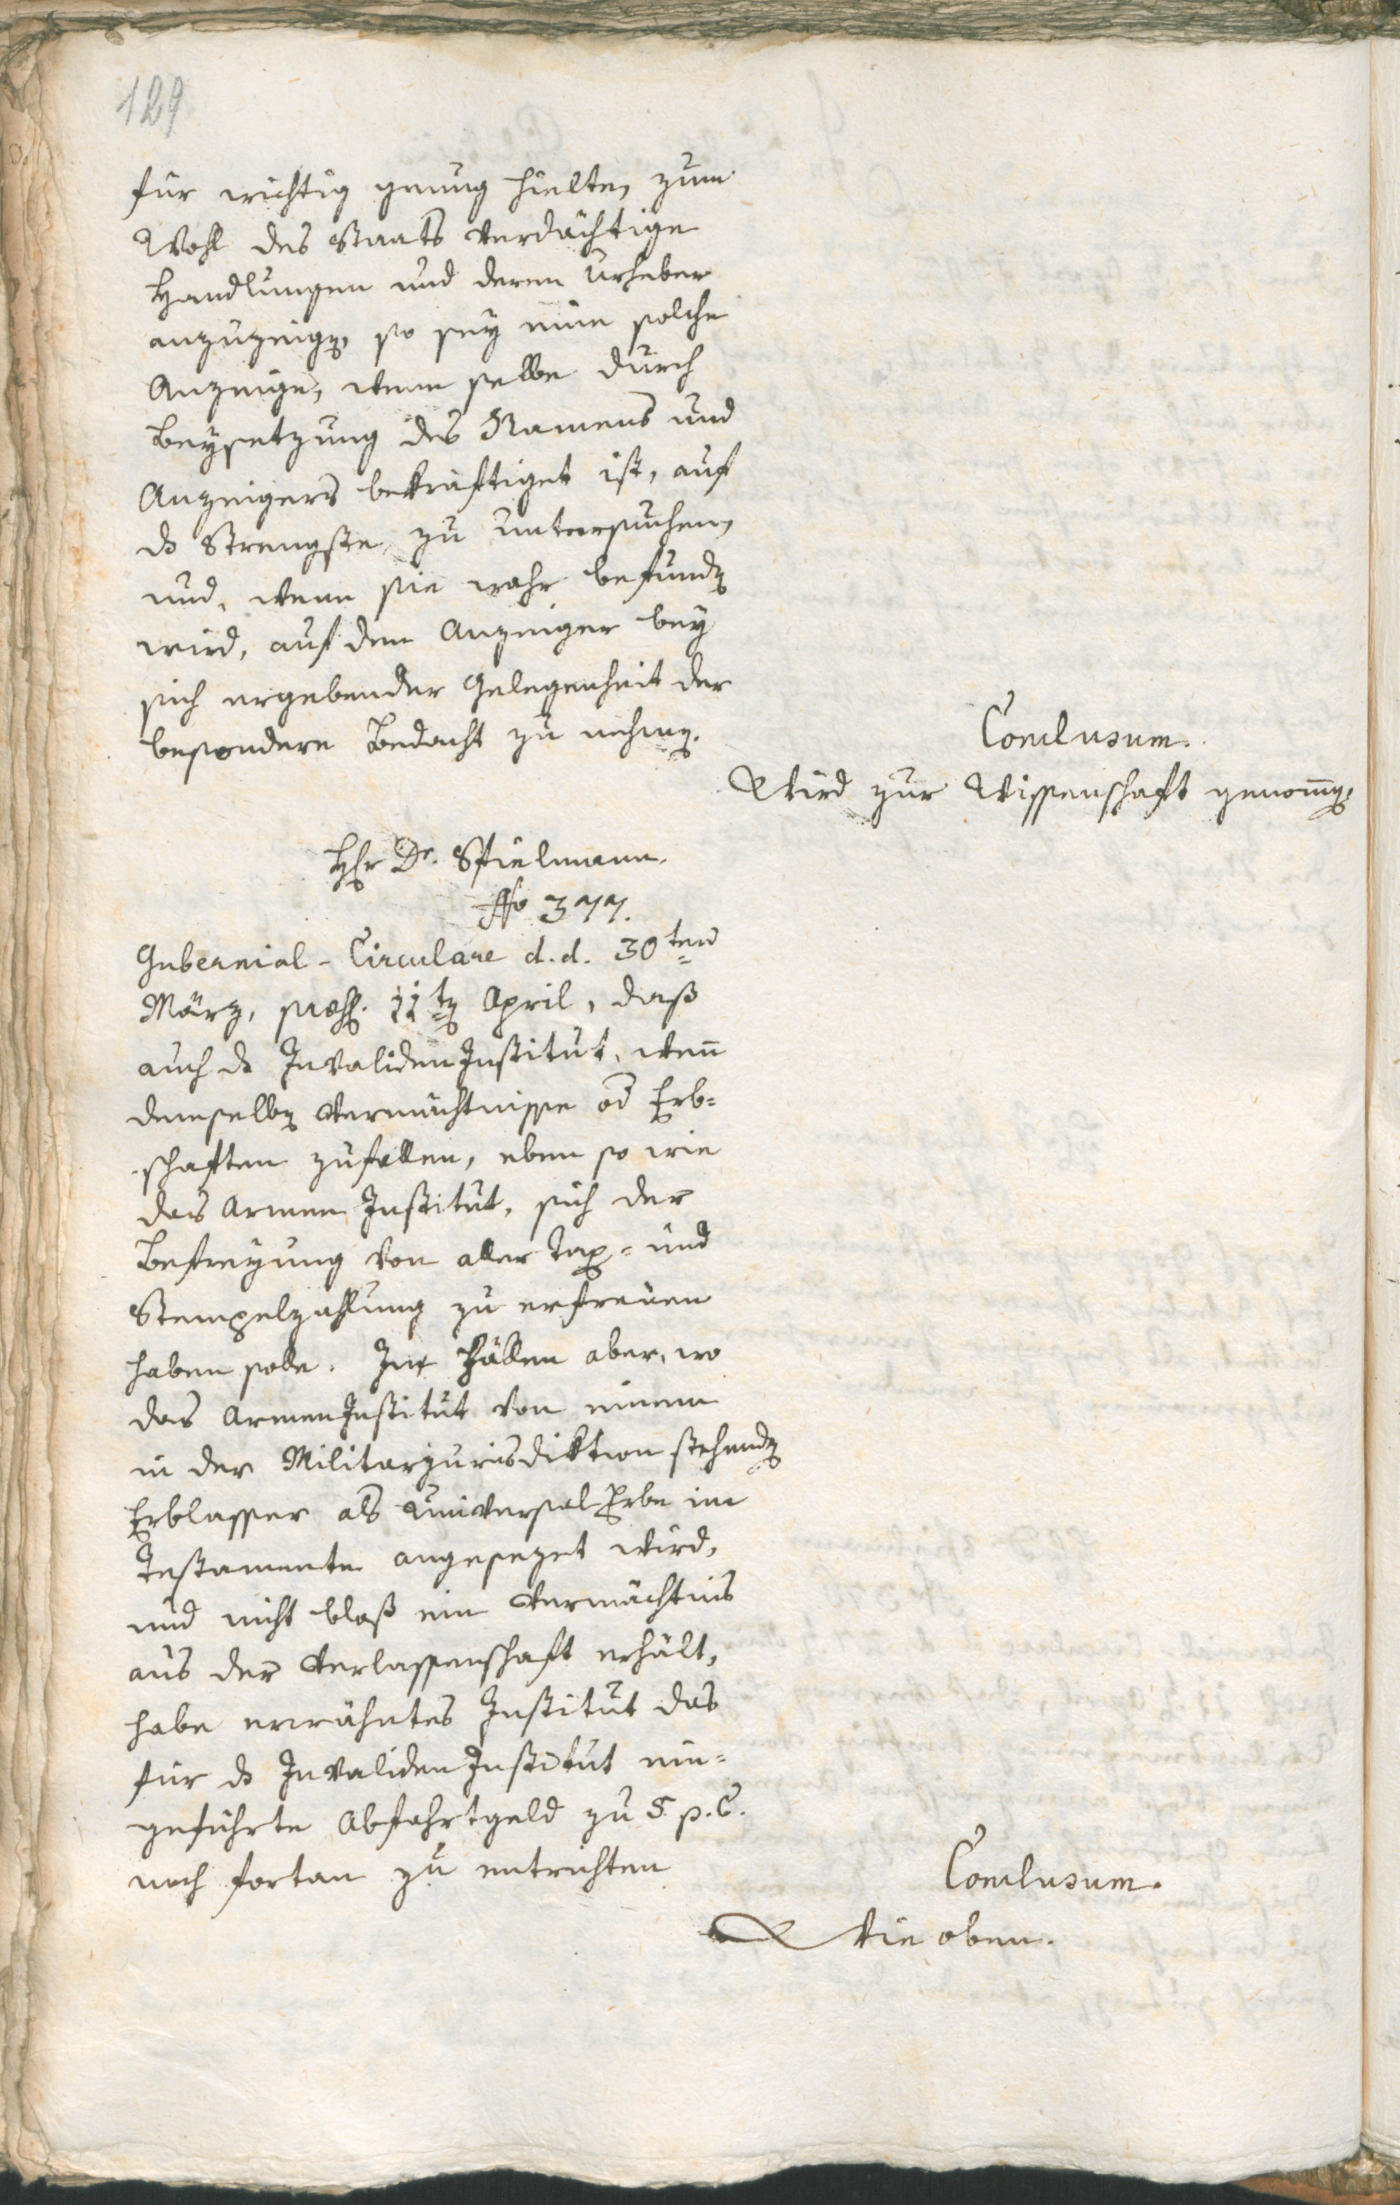 129
für wichtig genug hielten, zum
Wohl des Staats verdächtige
Handlungen und deren Urheber
anzuzeigen, so sey eine solche
Anzeige, wenn selbe durch
Beysetzung des Namens und
Anzeigers bekräftiget ist, auf
das Strengste zu untersuchen,
und, wenn sie wahr befunden
wird, auf den Anzeiger bey
sich ergebender Gelegenheit der
besondere Bedacht zu nehmen.
Conclusum.
Wird zur Wissenschaft genommen.
Hr Dr. Spielmann.
No 377.
Gubernial-Circulare d.d. 30ten
März, praes. 11ten April, daß
auch das Invaliden Institut, wenn
demselben Vermächtnisse od Erb=
schaften zufallen, eben so wie
das Armen Institut, sich der
Befreyung von aller Tax= und
Stempelzahlung zu erfreuen
haben solle. In Fällen aber, wo
das Armen Institut von einem
in der Militarjurisdiktion stehenden
Erblasser als Universal Erbe im
Testamente angesezet wird,
und nicht bloß ein Vermächtnis
aus der Verlassenschaft erhält,
habe erwähntes Institut das
für das Invaliden Institut ein=
geführte Abfahrtgeld zu 5 p. C.
noch fortan zu entrichten
Conclusum.
Wie oben.